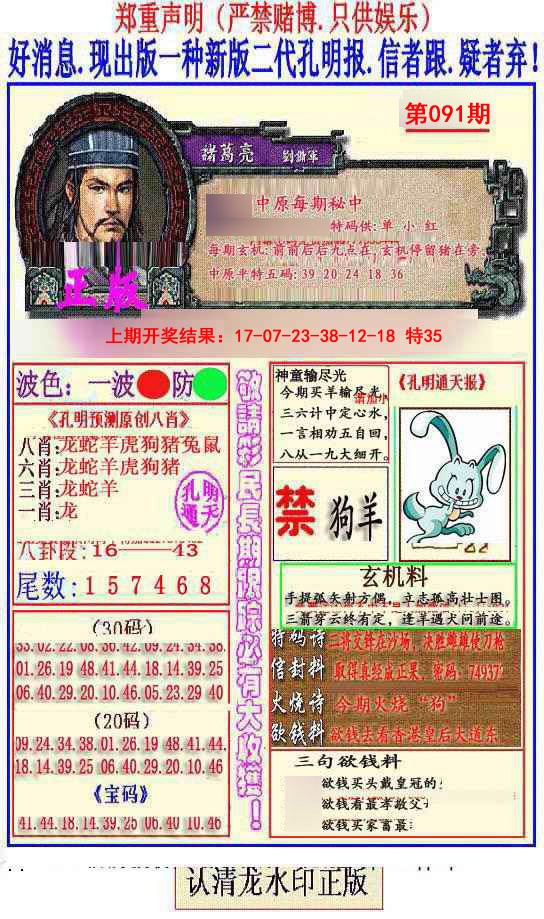 郑重声明（严禁赌博.只供娱乐）
好消息.现出版一种新版二代孔明报.信者跟.疑者弃！
第091期
諸葛亮 劉鐤軍
中原每期秘中
特码供:单 小 红
每期玄机:前前后后九点在,玄机停留猪在旁.
中原平特五码:39 20 24 18 36
正版
上期开奖结果：17-07-23-38-12-18 特35
波色：一波 防
《孔明预测原创八肖》
八肖:龙蛇羊虎狗猪兔鼠
六肖:龙蛇羊虎狗猪
三肖:龙蛇羊
一肖:龙
孔明通天
八卦段:16——43
尾数:157468
敬請彩民長期跟踪必有大收獲！
神童输尽光
今期买羊输尽光
三六计中定心水,
一言相劝五自回,
八从一九大细开。
《孔明通天报》
禁 狗羊
玄机料
手挽弧矢射方偶，立志孤高壮士图。
三箭穿云终有定，逢羊遇火问前途。
特码诗 三将交锋在沙场，决胜雌雄使刀枪
信封料 取得真经成正果，密码：74937
火烧诗 今期火烧“狗”
欲钱料 欲钱去看香港皇后大道东
（30码）
33.02.22.08.30.42.09.24.34.38.
01.26.19.48.41.44.18.14.39.25
06.40.29.20.10.46.05.23.29.40
（20码）
09.24.34.38.01.26.19.48.41.44.
18.14.39.25.06.40.29.20.10.46
《宝码》
41.44.18.14.39.25.06.40.10.46
三句欲钱料
欲钱买头戴皇冠的
欲钱看最孝敬父
欲钱买家畜最
认清龙水印正版